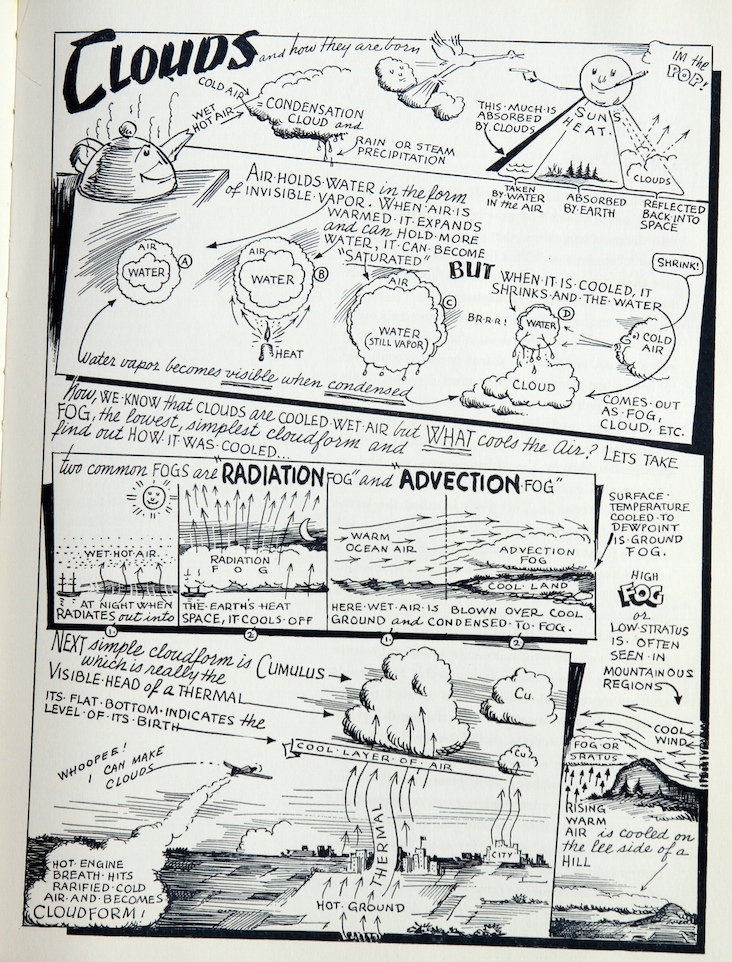 CLOUDS and how they are born
I'M the
POP!
COLD AIR
WET
HOT AIR
= CONDENSATION
CLOUD and
RAIN OR STEAM
PRECIPITATION
THIS·MUCH·IS
ABSORBED
BY·CLOUDS
SUN'S
HEAT.
CLOUDS
TAKEN
BY·WATER
IN the AIR
ABSORBED
BY·EARTH
REFLECTED
BACK INTO
SPACE
AIR·HOLDS·WATER in the form
of INVISIBLE·VAPOR. WHEN·AIR·IS
WARMED·IT·EXPANDS
and can HOLD·MORE
WATER, IT·CAN·BECOME
"SATURATED"
BUT WHEN·IT·IS·COOLED, IT
SHRINKS·AND·THE·WATER
SHRINK!
AIR
WATER
A
AIR
WATER
B
HEAT
AIR
WATER
(STILL VAPOR)
C
BR·R·R!
WATER
D
CLOUD
COLD
AIR
COMES·OUT
AS·FOG,
CLOUD, ETC.
Water vapor becomes visible when condensed
Now, WE·KNOW that CLOUDS ARE COOLED·WET·AIR but WHAT cools the Air? LETS TAKE
FOG, the lowest, simplest cloudform and
find out HOW·IT·WAS·COOLED...
two common FOGS are "RADIATION FOG" and "ADVECTION·FOG"
WET·HOT·AIR
AT·NIGHT·WHEN
RADIATES out into
1.
RADIATION
FOG
THE·EARTH'S·HEAT
SPACE, IT·COOLS·OFF
2
WARM
OCEAN AIR
ADVECTION
FOG
COOL·LAND
HERE·WET·AIR·IS BLOWN OVER COOL
GROUND and CONDENSED·TO·FOG.
1
2
SURFACE·
TEMPERATURE
COOLED·TO
DEWPOINT
IS·GROUND
FOG.
HIGH
FOG
or
LOW·STRATUS
IS·OFTEN
SEEN·IN
MOUNTAINOUS
REGIONS
NEXT simple cloudform is CUMULUS
which is really the
VISIBLE·HEAD of a THERMAL
ITS·FLAT·BOTTOM·INDICATES the
LEVEL·OF·ITS·BIRTH
Cu.
Cu
COOL·LAYER·OF·AIR
WHOOPEE!
I CAN MAKE
CLOUDS
THERMAL
CITY
HOT·GROUND
HOT·ENGINE
BREATH·HITS
RARIFIED·COLD
AIR·AND·BECOMES
CLOUDFORM!
COOL
WIND
FOG OR
SRATUS
RISING
WARM
AIR is cooled on
the lee side of a
HILL